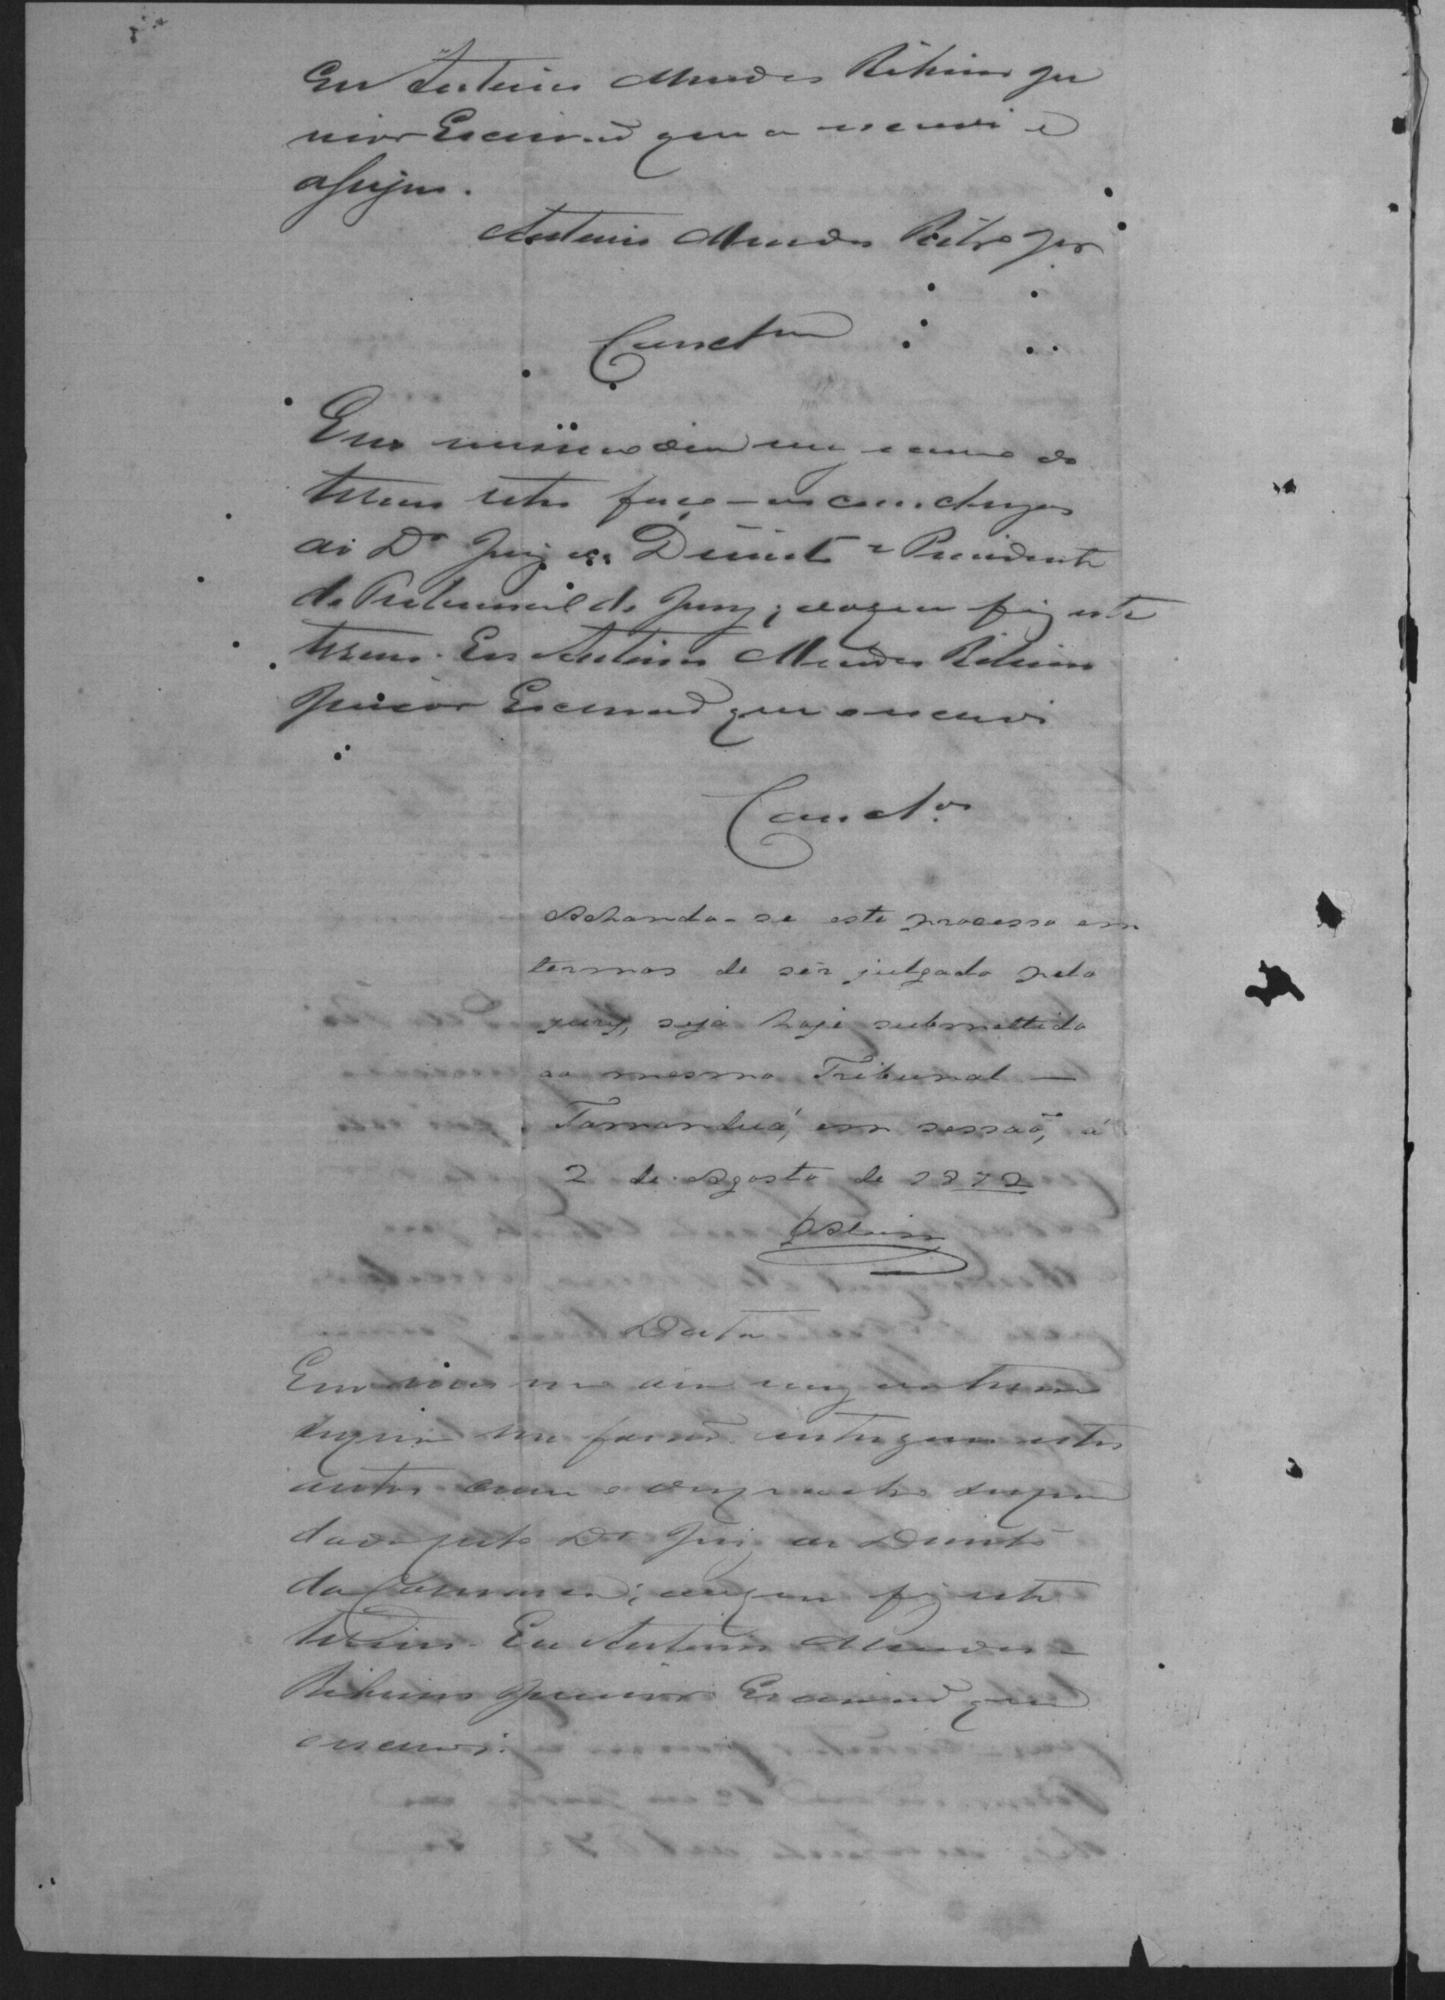 Eu Antonio Mendes Ribeiro Ju
nior Escrivaõ que o escrevi e
assigno.
Antonio Mendes Ribro Jor
Conclm
Em mesmo dia mez e anno do
termo retro faço-os conclusos
ao Dr Juiz de Direito e Presidente
do Tribunal do Jury; do que fiz este
termo. Eu Antonio Mendes Ribeiro
Junior Escrivaõ que o escrevi
Conclos
Achando-se este processo em
termos de sêr julgado pelo
jury, seja hoje submettido
ao mesmo Tribunal —
Tamanduá, em sessaõ, á
2 de Agosto de 1872
Data
Em o dia mez
me foraõ entregues estes
autos com o despacho supra
dado pelo Dr Juiz de Direito
da Comarca; do que fiz este
termo. Eu Antonio Mendes
Ribeiro Junior Escrivaõ que
o escrevi.